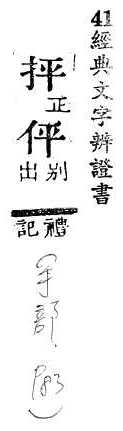 41經典文字辨證書
抨正伻別出禮記
(手部、